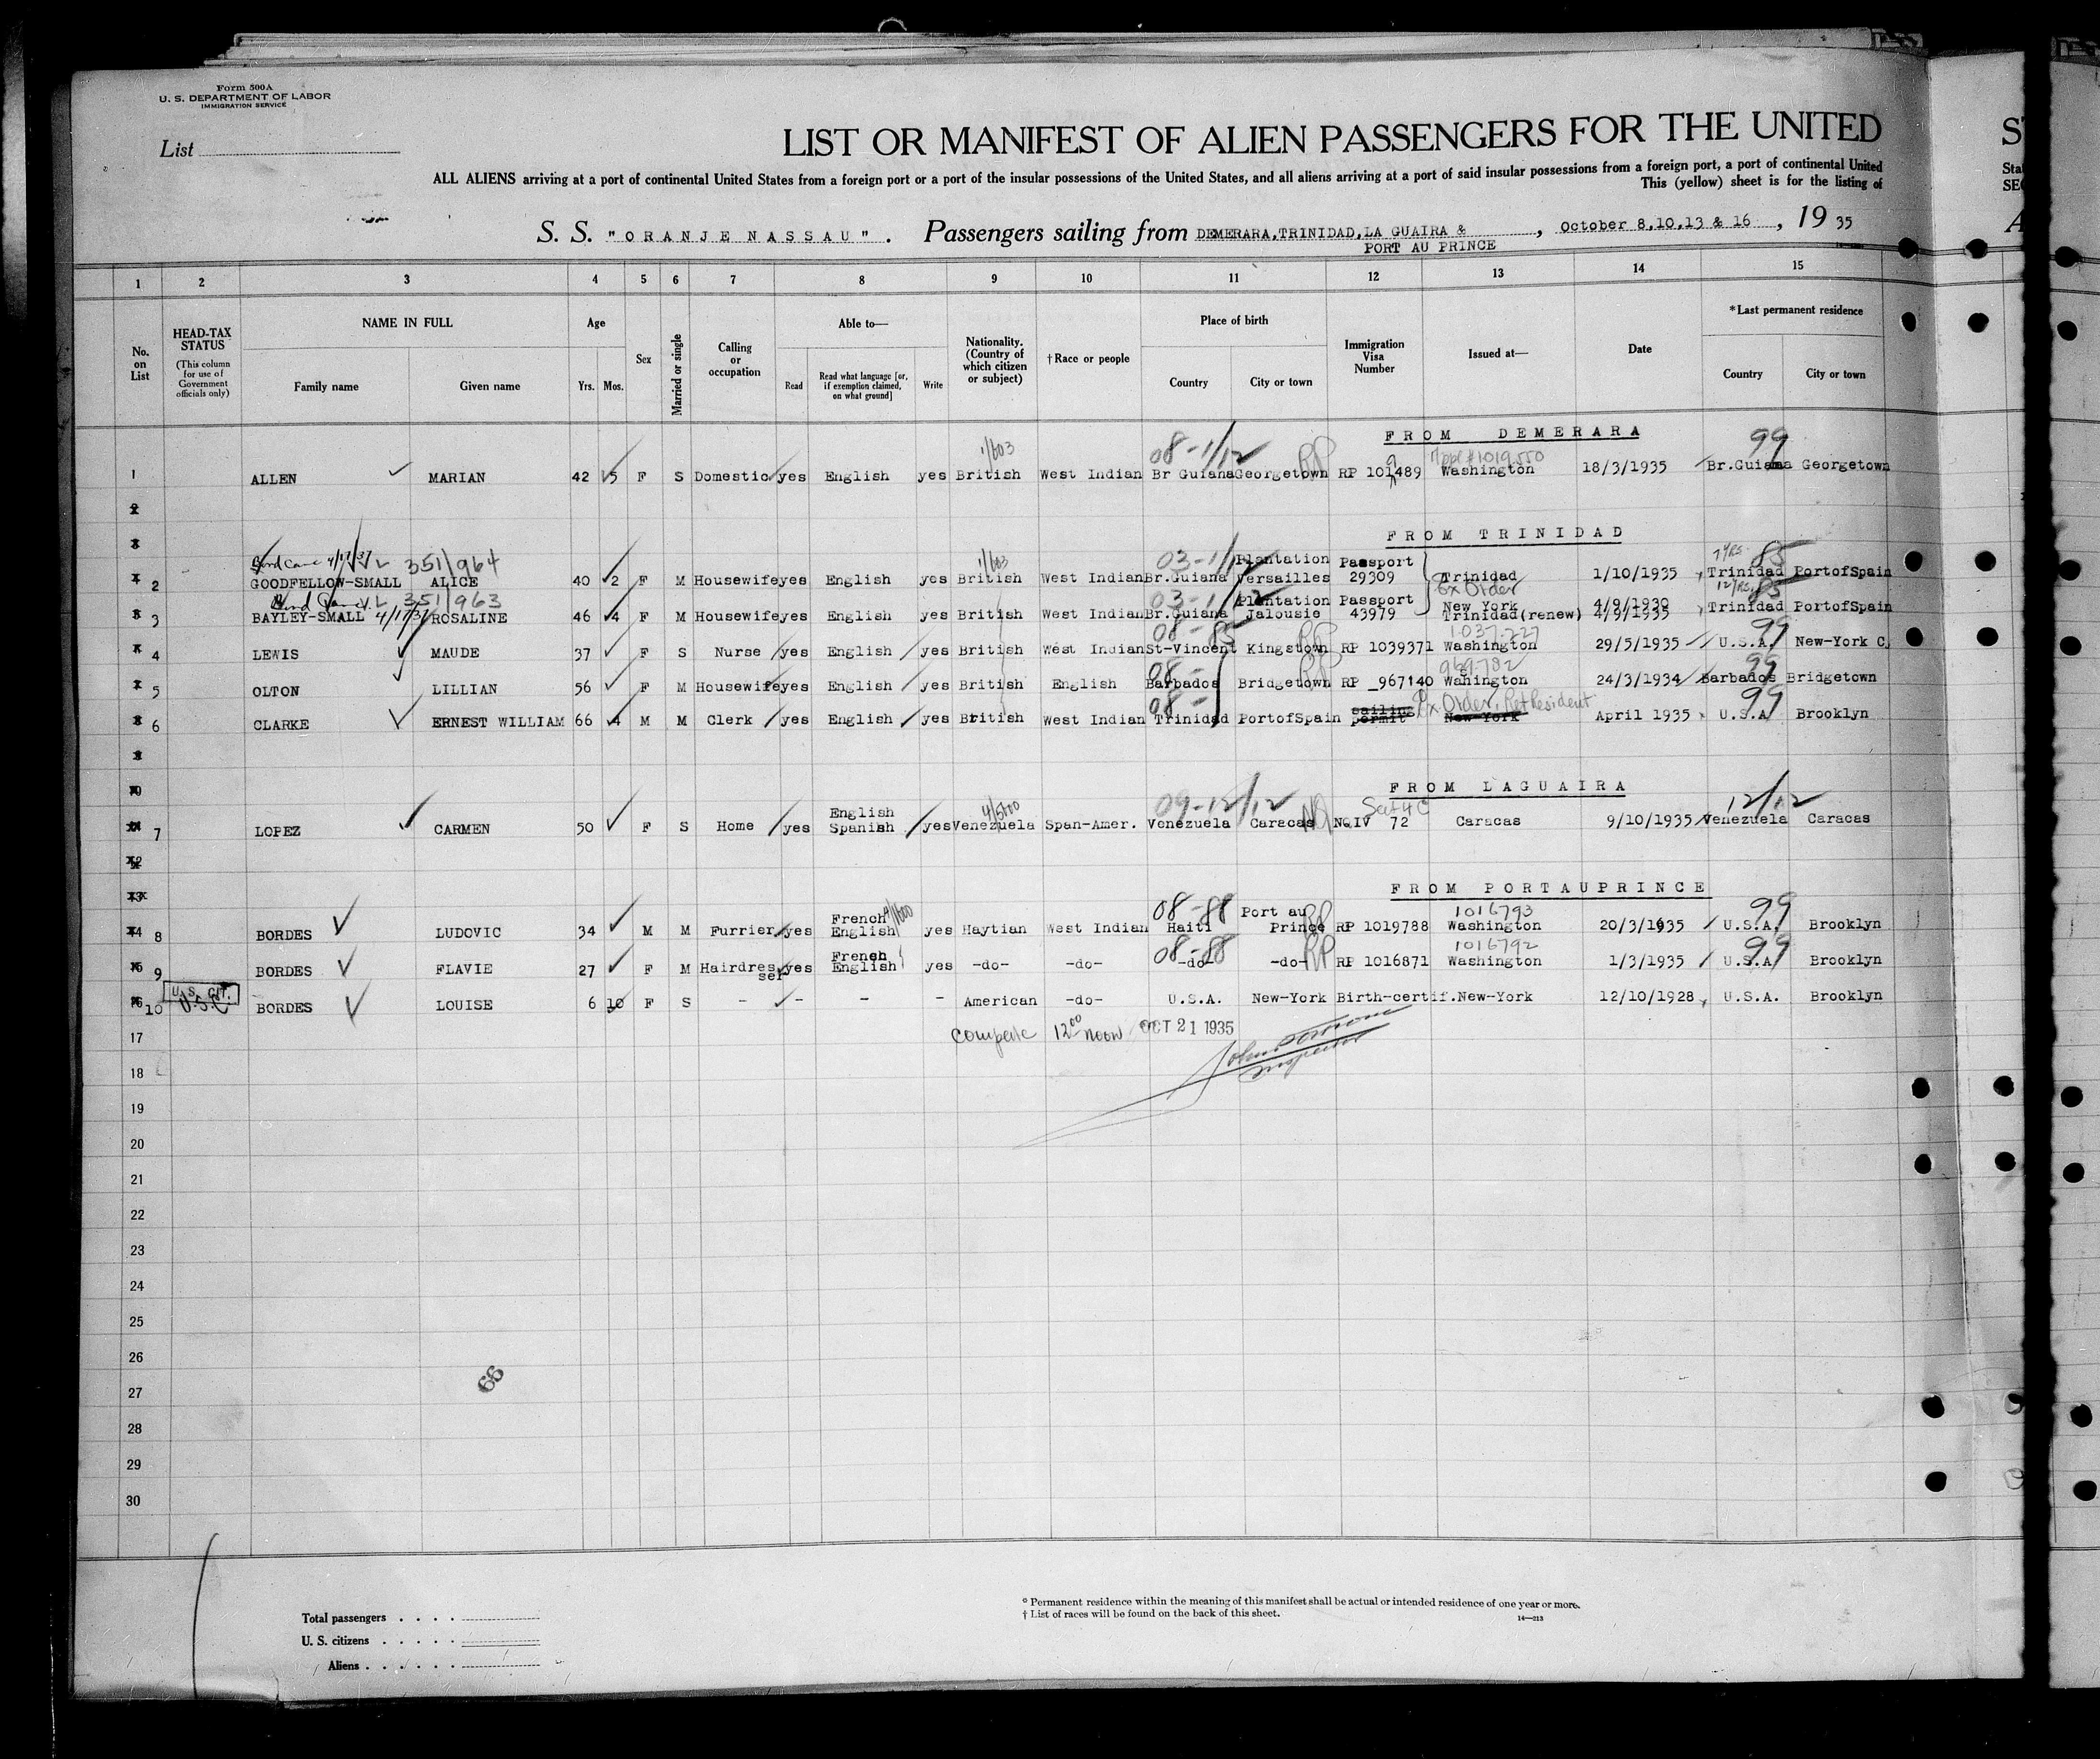 Form 500A
U. S. DEPARTMENT OF LABOR
IMMIGRATION SERVICE
List
LIST OR MANIFEST OF ALIEN PASSENGERS FOR THE UNITED
ALL ALIENS arriving at a port of continental United States from a foreign port or a port of the insular possessions of the United States, and all aliens arriving at a port of said insular possessions from a foreign port, a port of continental United
This (yellow) sheet is for the listing of
S. S. "ORANJE NASSAU". Passengers sailing from DEMERARA,TRINIDAD,LA GUAIRA & , October 8,10,13 & 16 , 19 35
PORT AU PRINCE
1 2 3 4 5 6 7 8 9 10 11 12 13 14 15
No. on List
HEAD-TAX STATUS
(This column for use of Government officials only)
NAME IN FULL
Family name Given name
Age
Yrs. Mos.
Sex
Married or single
Calling or occupation
Able to—
Read
Read what language [or, if exemption claimed, on what ground]
Write
Nationality. (Country of which citizen or subject)
†Race or people
Place of birth
Country City or town
Immigration Visa Number
Issued at—
Date
*Last permanent residence
Country City or town
FROM DEMERARA
1/603 08-1/12 RP 9 99
1 ALLEN MARIAN 42 5 F S Domestic yes English yes British West Indian Br Guiana Georgetown RP 101489 Washington 18/3/1935 Br.Guiana Georgetown
2
3 FROM TRINIDAD
4/17/37 VL 351/964 1/603 03-1/12 Plantation Passport 7 YRS. 85
2 GOODFELLOW-SMALL ALICE 40 2 F M Housewife yes English yes British West Indian Br.Guiana Versailles 29309 Trinidad 1/10/1935 Trinidad PortofSpain
VL 351/963 03-1/12 Plantation Passport Ex Order New York 4/9/1930 12 YRS. 85
3 BAYLEY-SMALL 4/17/37 ROSALINE 46 4 F M Housewife yes English yes British West Indian Br.Guiana Jalousie 43979 Trinidad(renew) 4/9/1935 Trinidad PortofSpain
08-85 RP 1037227 99
4 LEWIS MAUDE 37 F S Nurse yes English yes British West Indian St-Vincent Kingstown RP 1039371 Washington 29/5/1935 U.S.A. New-York C.
08- RP 969782 99
5 OLTON LILLIAN 56 F M Housewife yes English yes British English Barbados Bridgetown RP 967140 Wahington 24/3/1934 Barbados Bridgetown
08- sailing Ex. Order, Ret Resident 99
6 CLARKE ERNEST WILLIAM 66 4 M M Clerk yes English yes British West Indian Trinidad PortofSpain permit New-York April 1935 U.S.A. Brooklyn
9
10 FROM LAGUAIRA
English 4/500 09-12/12 Sec 4 C 12/12
7 LOPEZ CARMEN 50 F S Home yes Spanish yes Venezuela Span-Amer. Venezuela Caracas NQIV 72 Caracas 9/10/1935 Venezuela Caracas
12
13 FROM PORTAUPRINCE
French 08-88 Port au RP 1016793 99
14 8 BORDES LUDOVIC 34 M M Furrier yes English yes Haytian West Indian Haiti Prince RP 1019788 Washington 20/3/1935 U.S.A. Brooklyn
French 08-88 RP 1016792 99
9 BORDES FLAVIE 27 F M Hairdresser yes English yes -do- -do- -do- -do- RP 1016871 Washington 1/3/1935 U.S.A. Brooklyn
U. S. CIT.
10 U.S.C BORDES LOUISE 6 10 F S - - - - American -do- U.S.A. New-York Birth-certif. New-York 12/10/1928 U.S.A. Brooklyn
17 12 00 noon OCT 21 1935
Inspector
18
19
20
21
22
23
24
25
26
27
28
29
30
66
Total passengers . . . .
U. S. citizens . . . . .
Aliens . . . . . .
* Permanent residence within the meaning of this manifest shall be actual or intended residence of one year or more.
† List of races will be found on the back of this sheet.
14—213